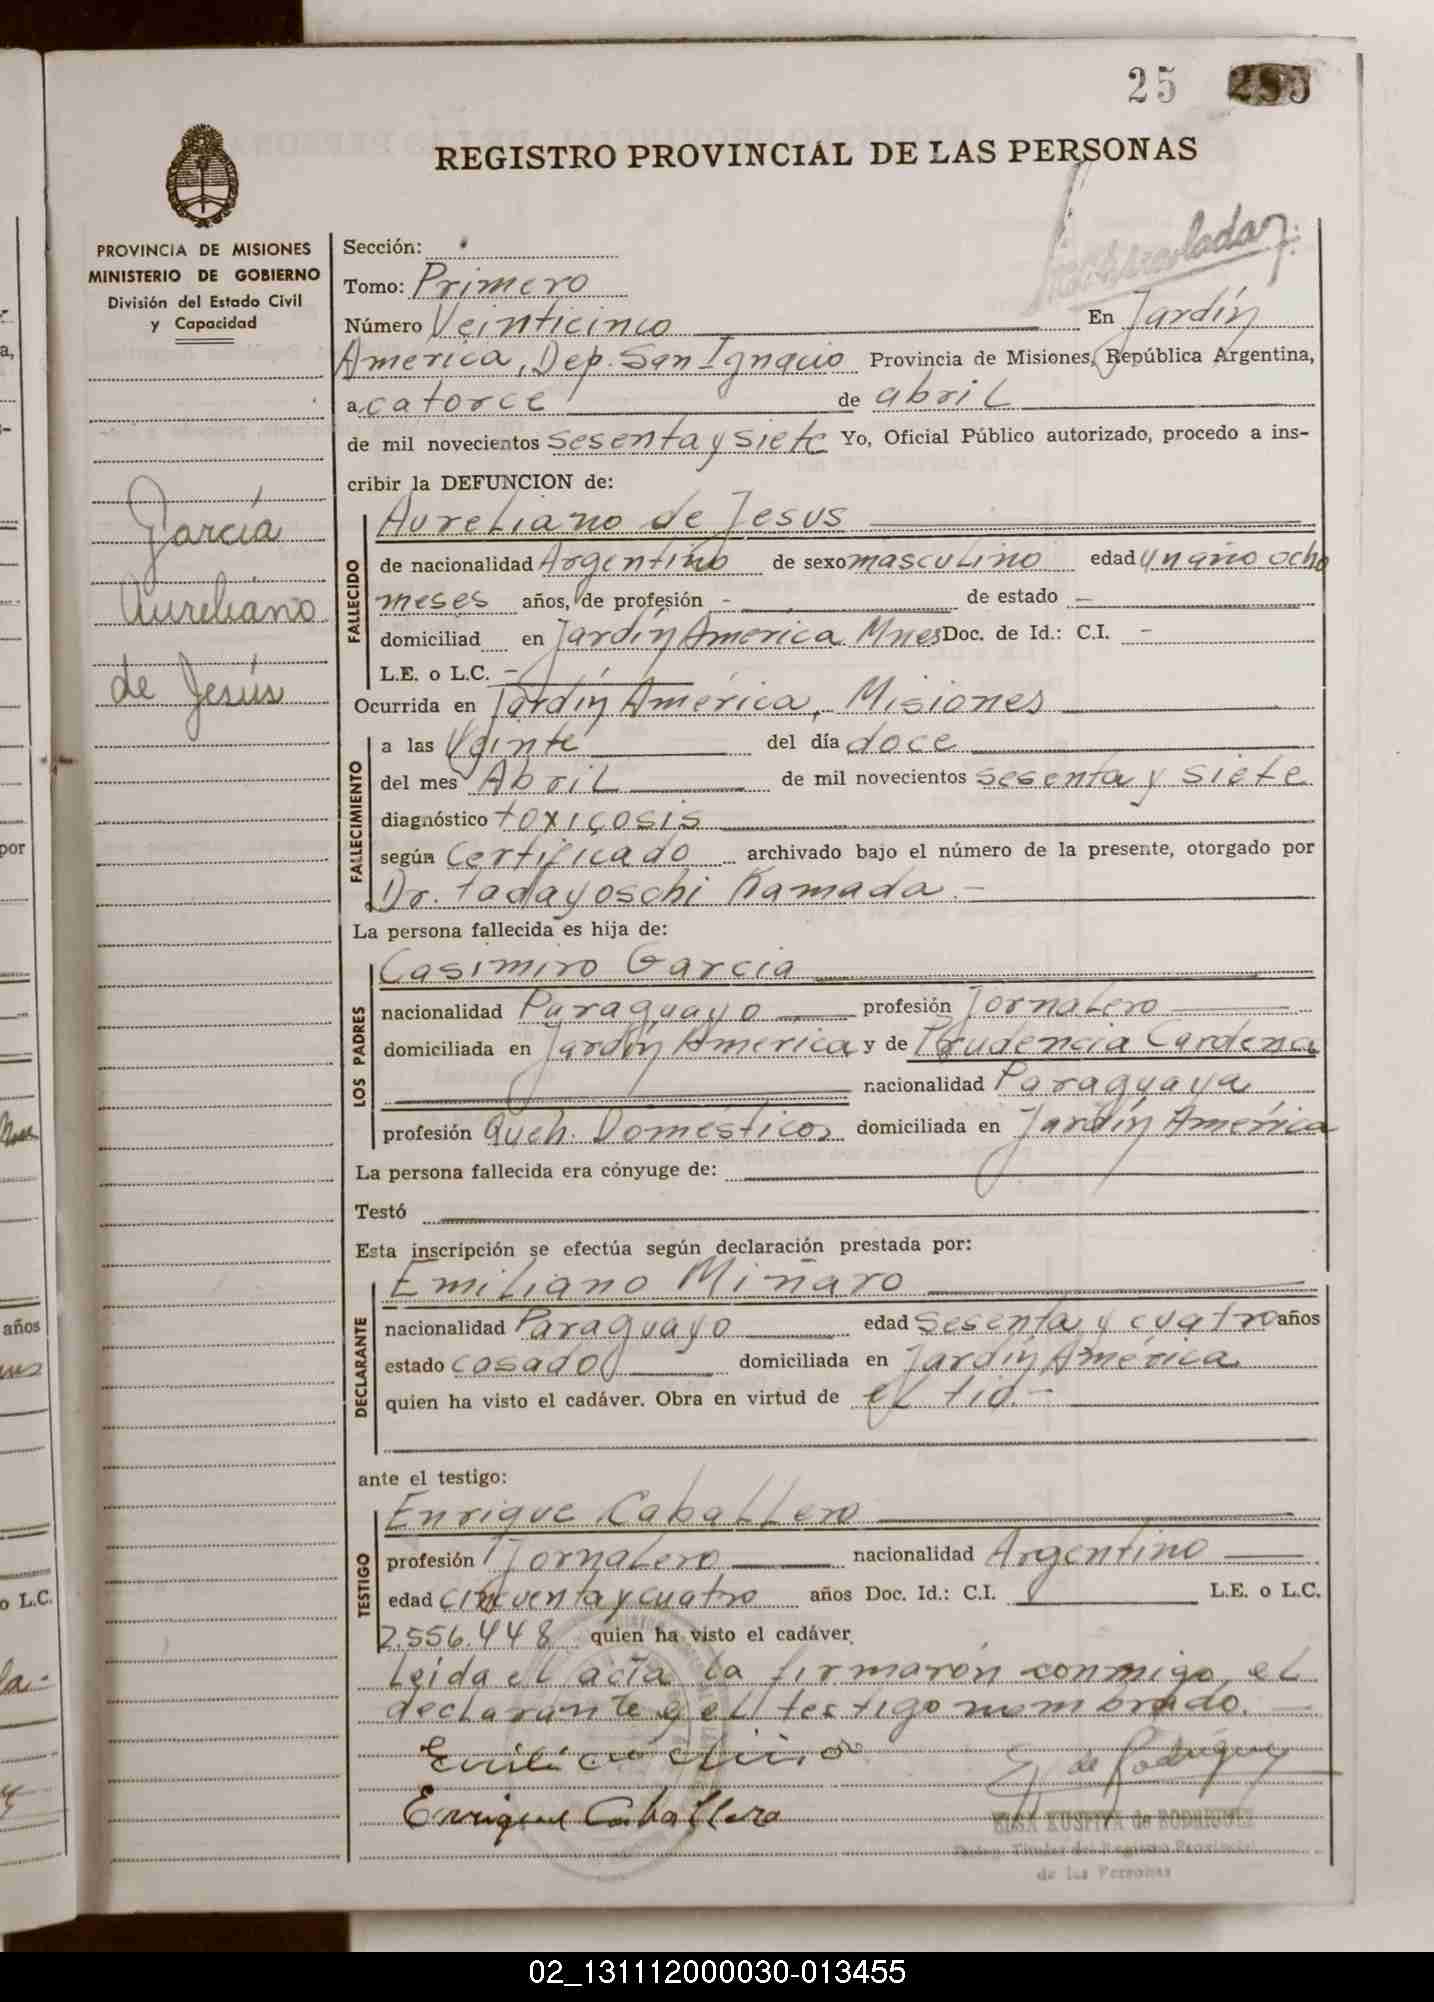 25
REGISTRO PROVINCIAL DE LAS PERSONAS
PROVINCIA DE MISIONES
MINISTERIO DE GOBIERNO
División del Estado Civil
y Capacidad
García
Aureliano
de Jesús
Sección:
Tomo: Primero
Número Veinticinco En Jardín
America, Dep. San Ignacio Provincia de Misiones, República Argentina,
a catorce de abril
de mil novecientos sesenta y siete Yo, Oficial Público autorizado, procedo a ins-
cribir la DEFUNCION de:
FALLECIDO
Aureliano de Jesus
de nacionalidad Argentino de sexo masculino edad un año ocho
meses años, de profesión - de estado -
domiciliad en Jardín America Mnes Doc. de Id.: C.I. -
L.E. o L.C. -
Ocurrida en Jardín América, Misiones
FALLECIMIENTO
a las Veinte del día doce
del mes Abril de mil novecientos sesenta y siete
diagnóstico toxicosis
según Certificado archivado bajo el número de la presente, otorgado por
Dr. tadayoschi Kamada.-
La persona fallecida es hija de:
LOS PADRES
Casimiro Garcia
nacionalidad Paraguayo profesión Jornalero
domiciliada en Jardín América y de Prudencia Cardena
nacionalidad Paraguaya
profesión Queh. Domésticos domiciliada en Jardín América
La persona fallecida era cónyuge de:
Testó
Esta inscripción se efectúa según declaración prestada por:
DECLARANTE
Emiliano Miñaro
nacionalidad Paraguayo edad sesenta y cuatro años
estado casado domiciliada en Jardín América
quien ha visto el cadáver. Obra en virtud de el tio.-
ante el testigo:
TESTIGO
Enrique Caballero
profesión Jornalero nacionalidad Argentino
edad cincuenta y cuatro años Doc. Id.: C.I. L.E. o L.C.
2.556.448 quien ha visto el cadáver.
Leída el acta la firmarón conmigo, el
declarante y el testigo nombrado.
Enrique Caballero
E. de Rodríguez
ELSA KUSPITA de RODRIGUEZ
Titular del Registro Provincial
de las Personas
02_131112000030-013455